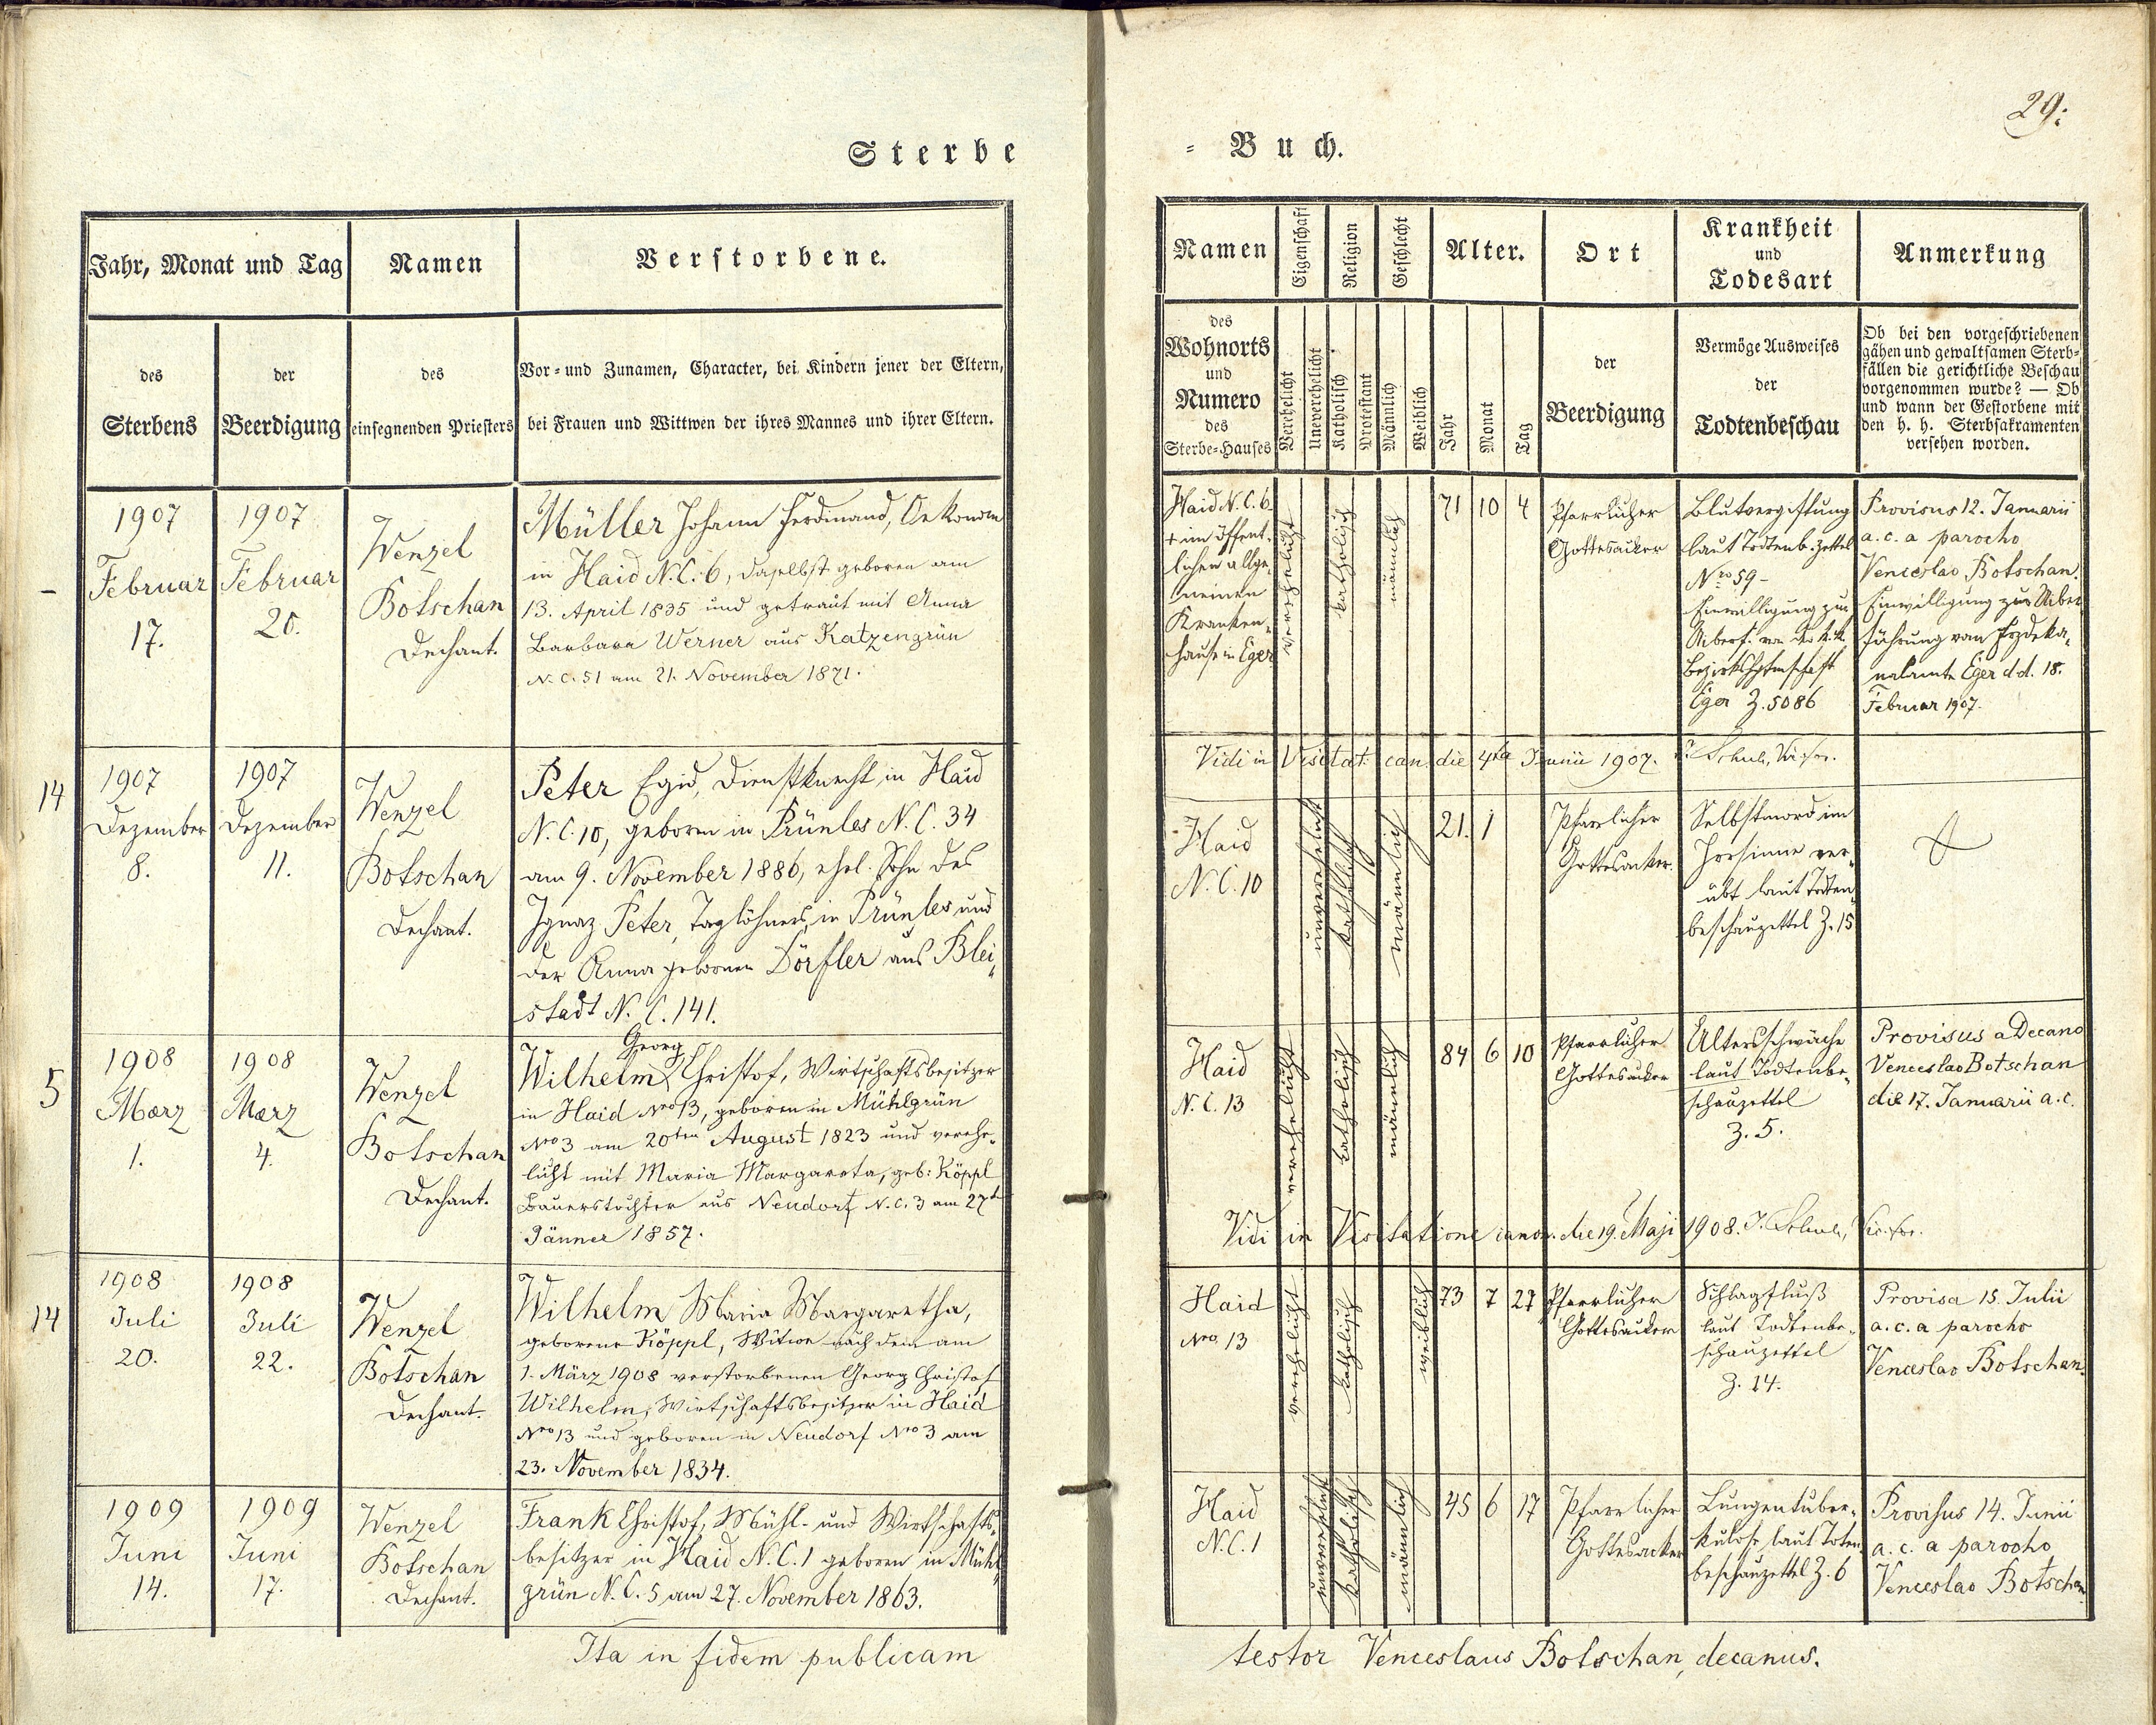 29:
Sterbe
= Buch.
Jahr, Monat und Tag
Namen
Verstorbene.
des
Sterbens
der
Beerdigung
des
einsegnenden Priesters
Vor- und Zunamen, Character, bei Kindern jener der Eltern,
bei Frauen und Wittwen der ihres Mannes und ihrer Eltern.
Namen
Eigenschaft
Religion
Geschlecht
Alter.
Ort
Krankheit
und
Todesart
Anmerkung
des
Wohnorts
und
Numero
des
Sterbe-Hauses
Verehelicht
Unverehelicht
Katholisch
Protestant
Männlich
Weiblich
Jahr
Monat
Tag
der
Beerdigung
Vermöge Ausweises
der
Todtenbeschau
Ob bei den vorgeschriebenen
gähen und gewaltsamen Sterb-
fällen die gerichtliche Beschau
vorgenommen wurde? — Ob
und wann der Gestorbene mit
den h. h. Sterbsakramenten
versehen worden.
-
1907
Februar
17.
1907
Februar
20.
Wenzel
Botschan
Dechant.
Müller Johann Ferdinand, Oekonom
in Haid N.C. 6, daselbst geboren am
13. April 1835 und getraut mit Anna
Barbara Werner aus Katzengrün
N.C. 51 am 21. November 1871.
Haid N.C. 6
+ im öffent-
lichen allge-
meinen
Kranken-
hause in Eger
verehelicht
katholisch
männlich
71
10
4
Pfarrlicher
Gottesacker
Blutvergiftung
laut Todtenb. Zettel
Nro 59 -
Einwilligung zur
Überf. von der k.k.
Bezirkshptmschaft
Eger Z. 5086
Provisus 12. Januarii
a. c. a parocho
Venceslao Botschan.
Einwilligung zur Über
führung vom Erzdeka-
nalamte Eger d.d. 18.
Februar 1907.
Vidi in Visitat. can. die 4ta Junii 1907.
14
1907
Dezember
8.
1907
Dezember
11.
Wenzel
Botschan
Dechant.
Peter Egid, Dienstknecht in Haid
N.C. 10, geboren in Prünles N.C. 34
am 9. November 1886, ehel. Sohn des
Ignaz Peter, Taglöhners in Prünles und
der Anna gebornen Dörfler aus Blei-
stadt N.C. 141.
Haid
N.C. 10
unverehelicht
katholisch
männlich
21.
1
Pfarrlicher
Gottesacker.
Selbstmord im
Irrsinne ver-
übt laut Todten-
beschauzettel Z. 15
5
1908
Maerz
1.
1908
Maerz
4.
Wenzel
Botschan
Dechant.
Georg
Wilhelm Christof, Wirtschaftsbesitzer
in Haid Nro 13, geboren in Mühlgrün
Nro 3 am 20ten August 1823 und verehe-
licht mit Maria Margareta, geb: Köppl
Bauerstochter aus Neudorf N.C. 3 am 27t
Jänner 1857.
Haid
N.C. 13
verehelicht
katholisch
männlich
84
6
10
Pfarrlicher
Gottesacker
Altersschwäche
laut Todtenbe-
schauzettel
Z. 5.
Provisus a Decano
Venceslao Botschan
die 17. Januarii a. c.
Vidi in Visitatione canon. die 19. Maji 1908.
14
1908
Juli
20.
1908
Juli
22.
Wenzel
Botschan
Dechant.
Wilhelm Maria Margaretha,
geborene Köppl, Witwe nach dem am
1. März 1908 verstorbenen Georg Christof
Wilhelm, Wirtschaftsbesitzer in Haid
Nro 13 und geboren in Neudorf Nro 3 am
23. November 1834.
Haid
Nro. 13
verehelicht
katholisch
weiblich
73
7
27
Pfarrlicher
Gottesacker
Schlagfluß
laut Todtenbe-
schauzettel
Z. 14.
Provisa 15. Julii
a. c. a parocho
Venceslao Botschan.
1909
Juni
14.
1909
Juni
17.
Wenzel
Botschan
Dechant.
Frank Christof, Mühl- und Wirtschafts-
besitzer in Haid N.C. 1 geboren in Mühl-
grün N.C. 5 am 27. November 1863.
Haid
N.C. 1
unverehelicht
katholisch
männlich
45
6
17
Pfarrlicher
Gottesacker
Lungentuber-
kulose laut Toten-
beschauzettel Z. 6
Provisus 14. Junii
a. c. a parocho
Venceslao Botschan
Ita in fidem publicam
testor Venceslaus Botschan, decanus.